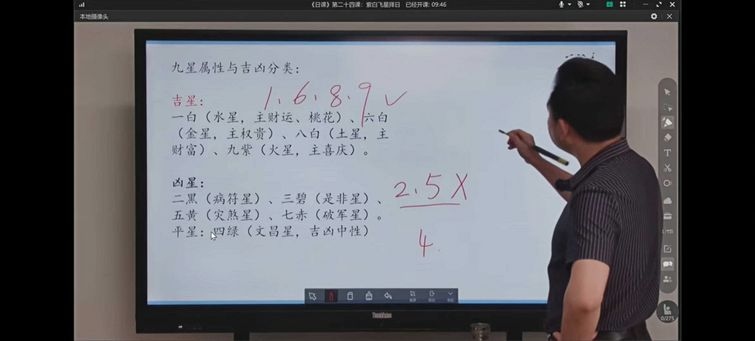 《日课》第二十四课：紫白飞星择日 已经开课: 09:46
本地摄像头
九星属性与吉凶分类：
吉星：
1. 6. 8. 9 ✓
一白（水星，主财运、桃花）、六白
（金星，主权贵）、八白（土星，主
财富）、九紫（火星，主喜庆）。
凶星：
二黑（病符星）、三碧（是非星）、
五黄（灾煞星）、七赤（破军星）。
平星：四绿（文昌星，吉凶中性）
2. 5 X
4.
0/275